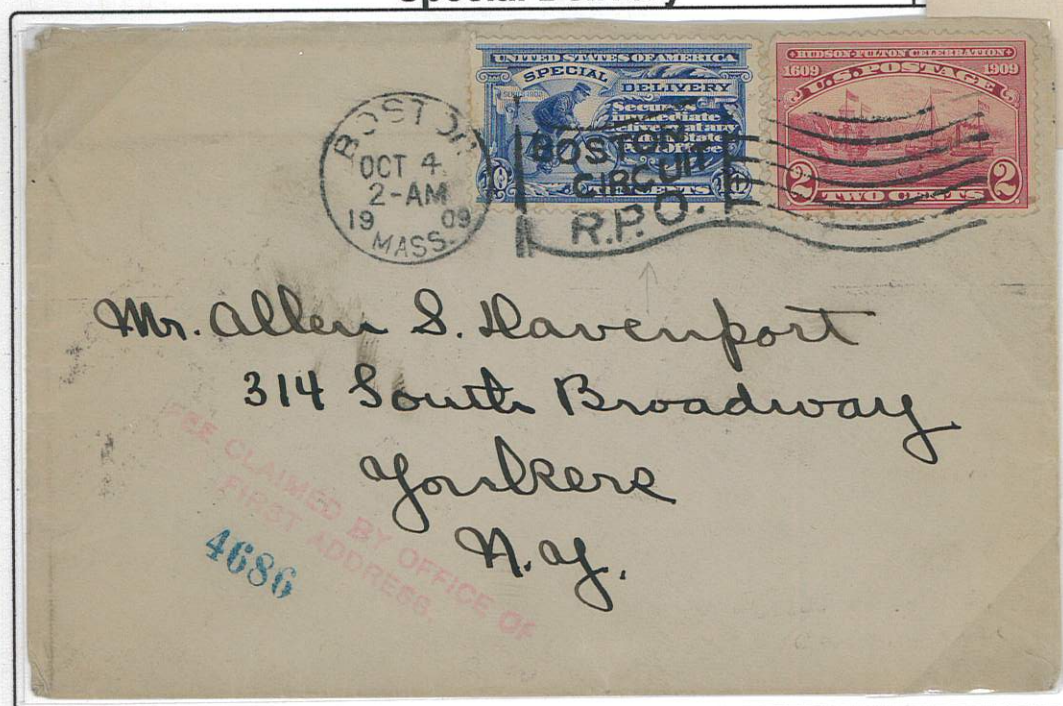 Special Delivery
UNITED STATES OF AMERICA
SPECIAL
DELIVERY
Secures
immediate
delivery at any
United States
Post Office
TEN CENTS
HUDSON-FULTON CELEBRATION
1609 1909
U.S. POSTAGE
2 TWO CENTS 2
BOSTON
OCT 4
2-AM
19 09
MASS.
BOSTON
CIRCUIT
R.P.O.
Mr. Allen S. Davenport
314 South Broadway
Yonkers
N.Y.
FEE CLAIMED BY OFFICE OF
FIRST ADDRESS.
4686